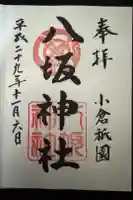 奉拝
小倉祇園
八坂神社
平成二十九年十一月六日